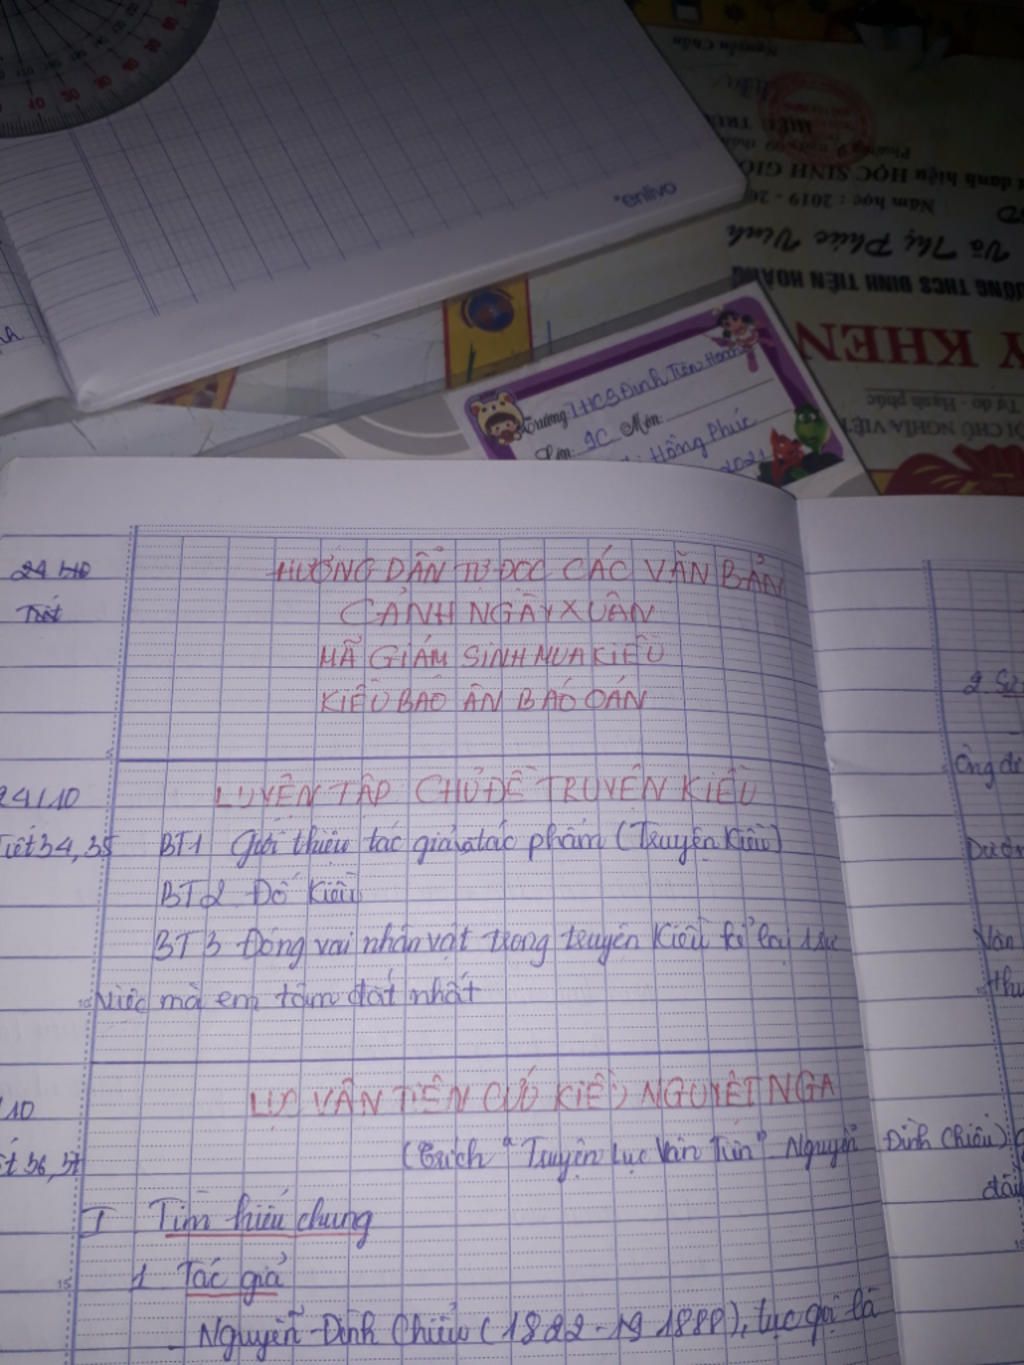 enlivo
Nguyễn Chấn
HIỆU TRƯ
danh hiệu HỌC SINH GIỎ
Năm học : 2019 - 20
Võ Thị Phúc Vinh
ƯỜNG THCS ĐINH TIÊN HOÀNG
Y KHEN
Tự do - Hạnh phúc
ỘI CHỦ NGHĨA VIỆT
Trường: THCS Đinh Tiên Hoàng
Lớp: 9C Môn:
Hồng Phúc
2021
24/10
Tiết
HƯỚNG DẪN TỰ ĐỌC CÁC VĂN BẢN
CẢNH NGÀY XUÂN
MÃ GIÁM SINH MUA KIỀU
KIỀU BÁO ÂN BÁO OÁN
24/10
LUYỆN TẬP CHỦ ĐỀ TRUYỆN KIỀU
Tiết 34, 35 BT1 Giới thiệu tác giả, tác phẩm (Truyện Kiều)
BT2 Đố Kiều
BT3 Đóng vai nhân vật trong truyện Kiều kể lại
mà em tâm đắt nhất
/10
LỤC VÂN TIÊN CỨU KIỀU NGUYỆT NGA
ết 36, 37
(Trích "Truyện Lục Vân Tiên" - Nguyễn Đình Chiểu)
I Tìm hiểu chung
1 Tác giả
Nguyễn Đình Chiểu (1822 - 1888), tục gọi là
2
Ông
Vân